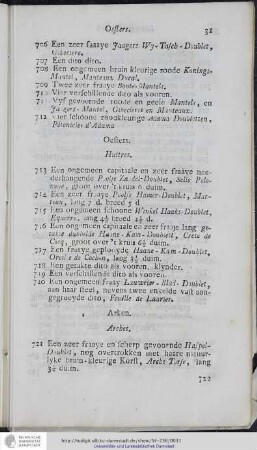 Oesters. 31
706 Een zeer fraaye Jaagers Wy-Tasch-Doublet,
Gibeciere.
707 Een dito dito.
708 Een ongemeen bruin kleurige roode Konings-
Mantel, Manteaux Ducal.
709 Twee zeer fraaye Bonte-Mantels.
710 Vier verschillende dito als vooren.
711 Vyf gevoornde roode en geele Mantels, en
Jagers-Mantel, Gibecieres en Manteaux.
712 Vier schoone zaagkleurige Doubletten,
Oesters.
Huitres.
713 Een ongemeen capitaale en zeer fraaye
Zadel-Doublet, Selle
groot over 't kruis 6 duim.
714 Een zeer fraaye Poolse Hamer-Doublet, Mar-
teau, lang 7 d. breed 5 d.
715 Een ongemeen schoone Winkel Haaks-Doublet,
Equerre, lang 4½ breed 4½ d.
716 Een ongemeen capitaale en zeer fraaje lang ge-
dubbelde Haane-Kam-Doublet, Crete de
Cocq, groot over 't kruis 6½ duim.
717 Een fraaye geplooyde Haane-Kam-Doublet,
Oreille de Cochon, lang 3½ duim.
718 Een gezakte dito als vooren, klynder.
719 Een verschillende dito als vooren.
720 Een ongemeen fraay Lauwrier-Blad-Doublet,
aan haar steel, nevens twee enkelde vast aan-
gegroeyde dito, Feuille de Laurier.
Arken.
Arches.
721 Een zeer fraaye en scherp gevoornde Haspel-
Doublet, nog overtrokken met haare natuur-
lyke bruin-kleurige Korst, Arche Torse, lang
3½ duim.
722